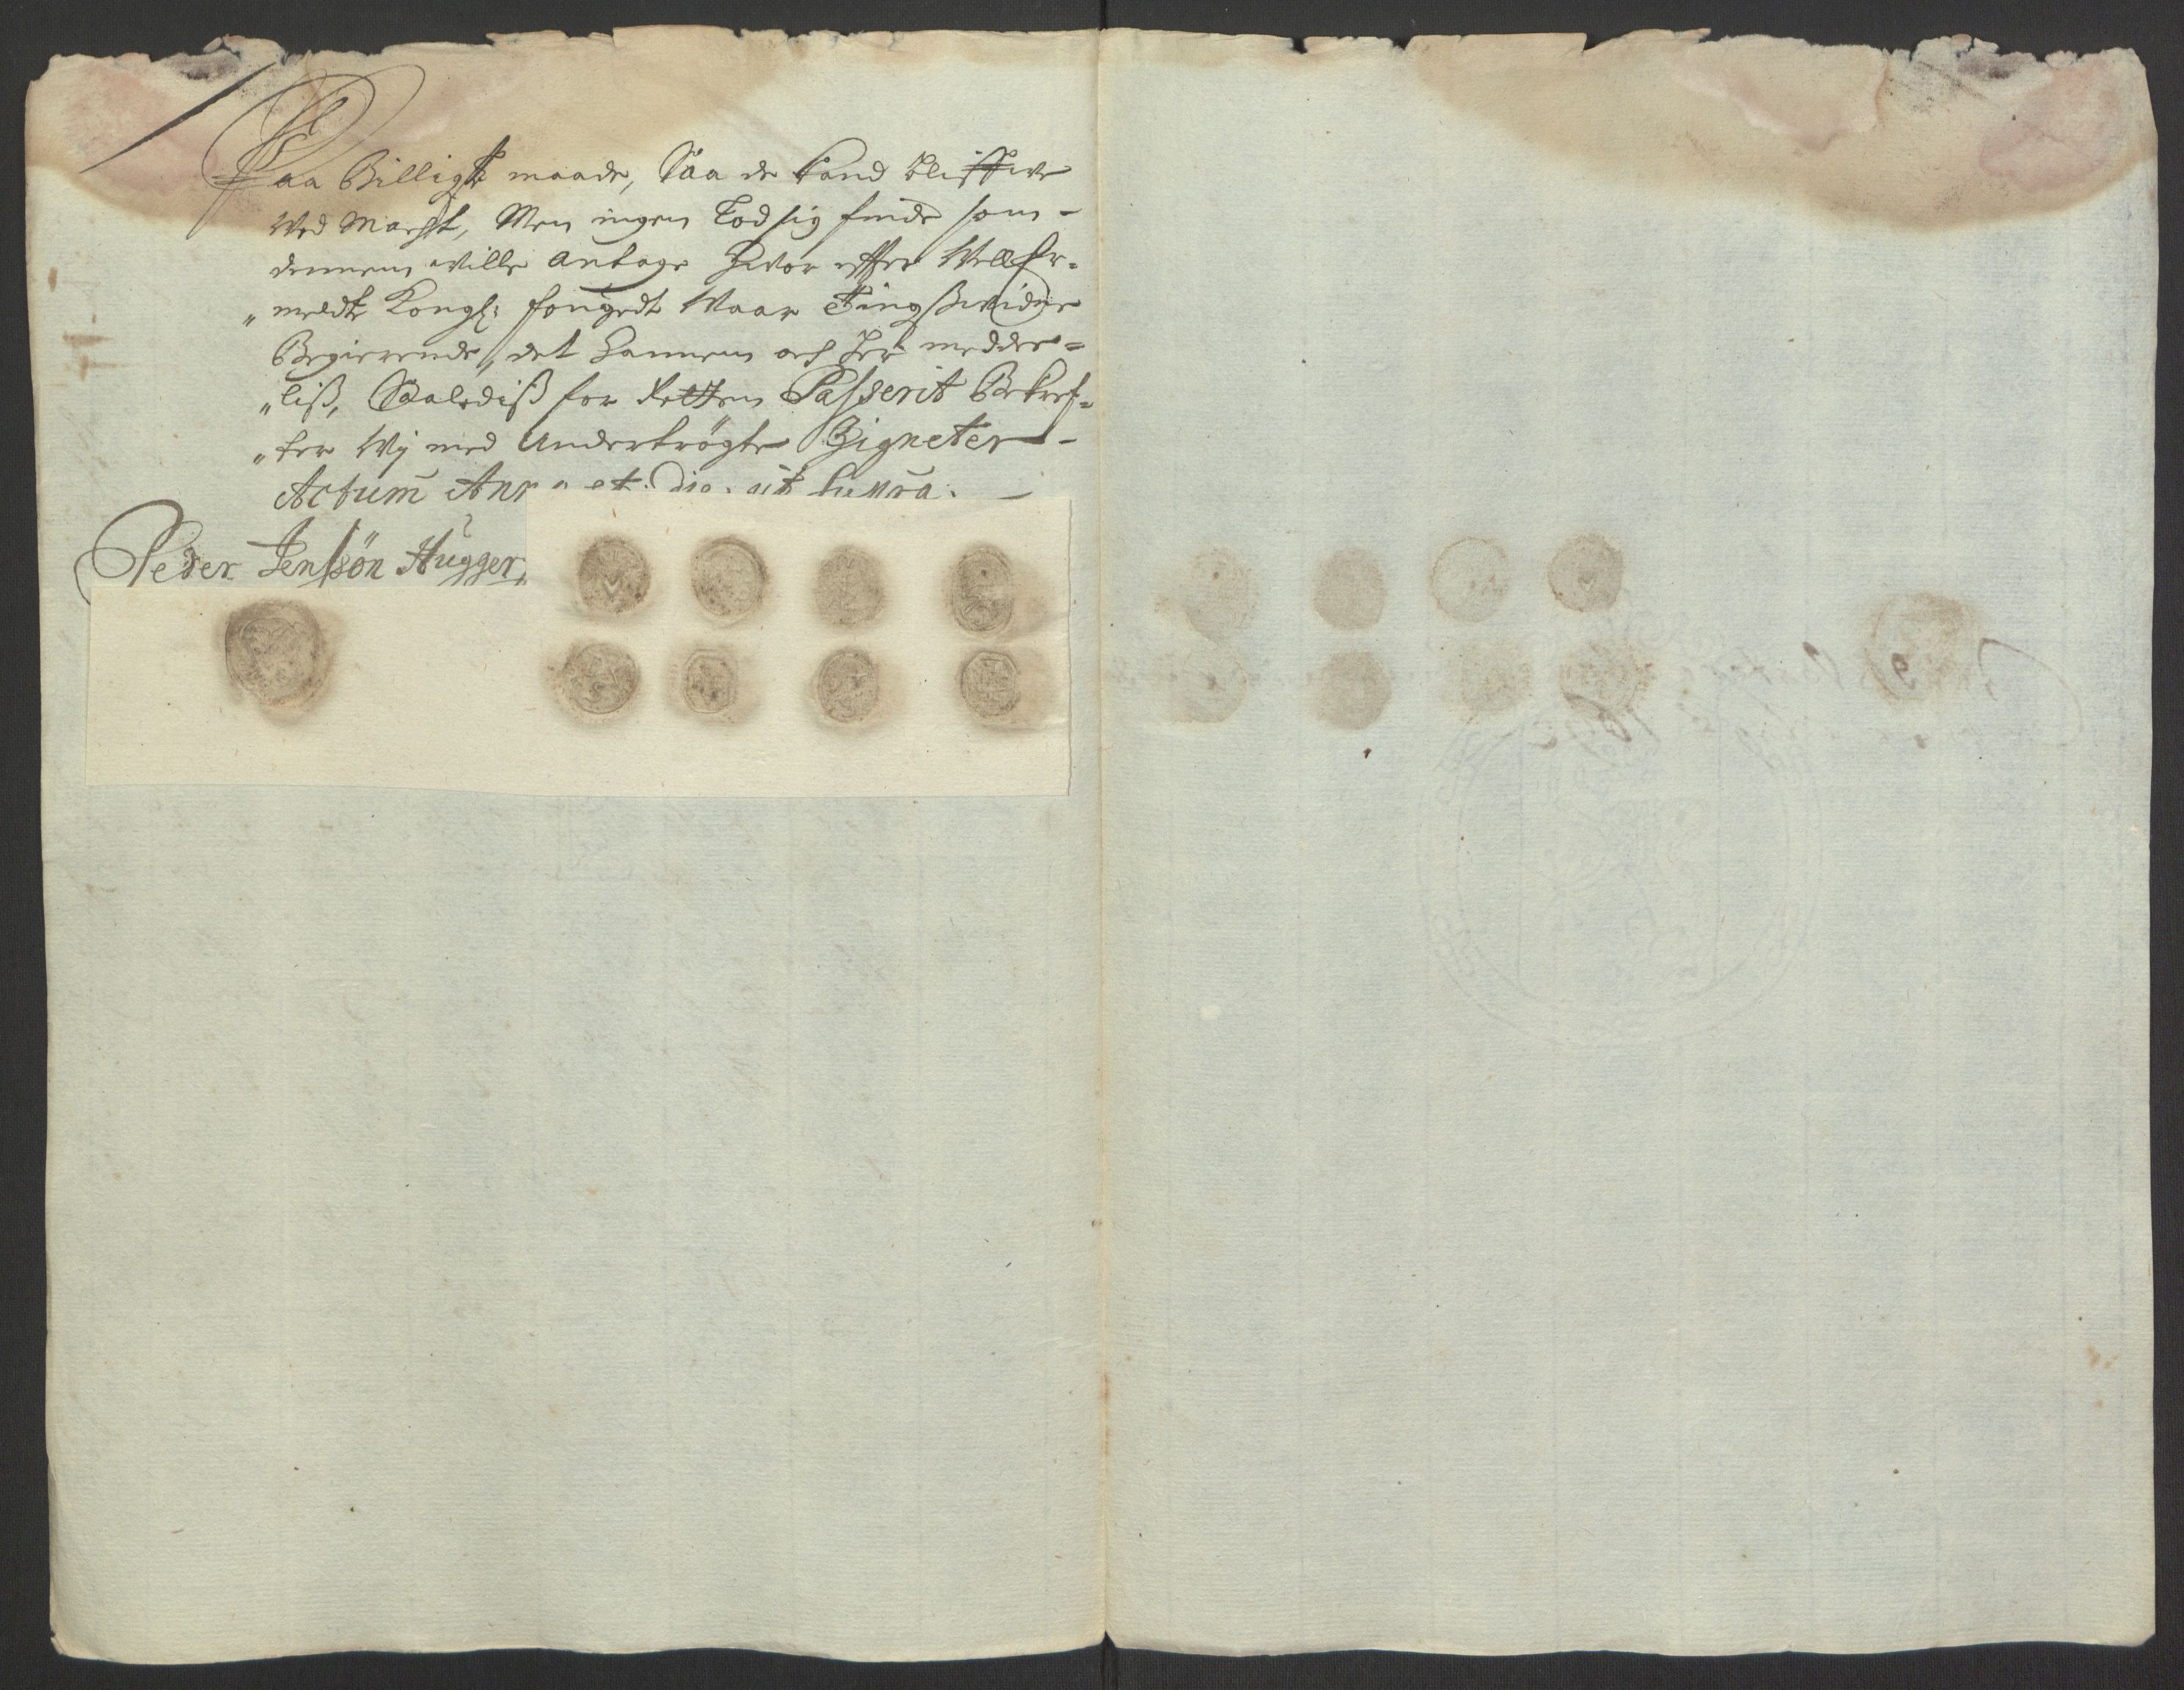 Paa Billigste maade, Saa de kand bliffwe
Wed Magst, Men ingen Lod sig finde som -
dennem wille Antage Hvor effter Welbe-
„meldte Kongl: fougedt Waar Tingsswidne
Begierende, det hannem och her medde-
„liss, Saalediss for Retten Passerit Bekref-
„ter Wij med Undertrögte Zigneter -
Actum Anno et die ut supra. -
Peder Jenssön Hugger